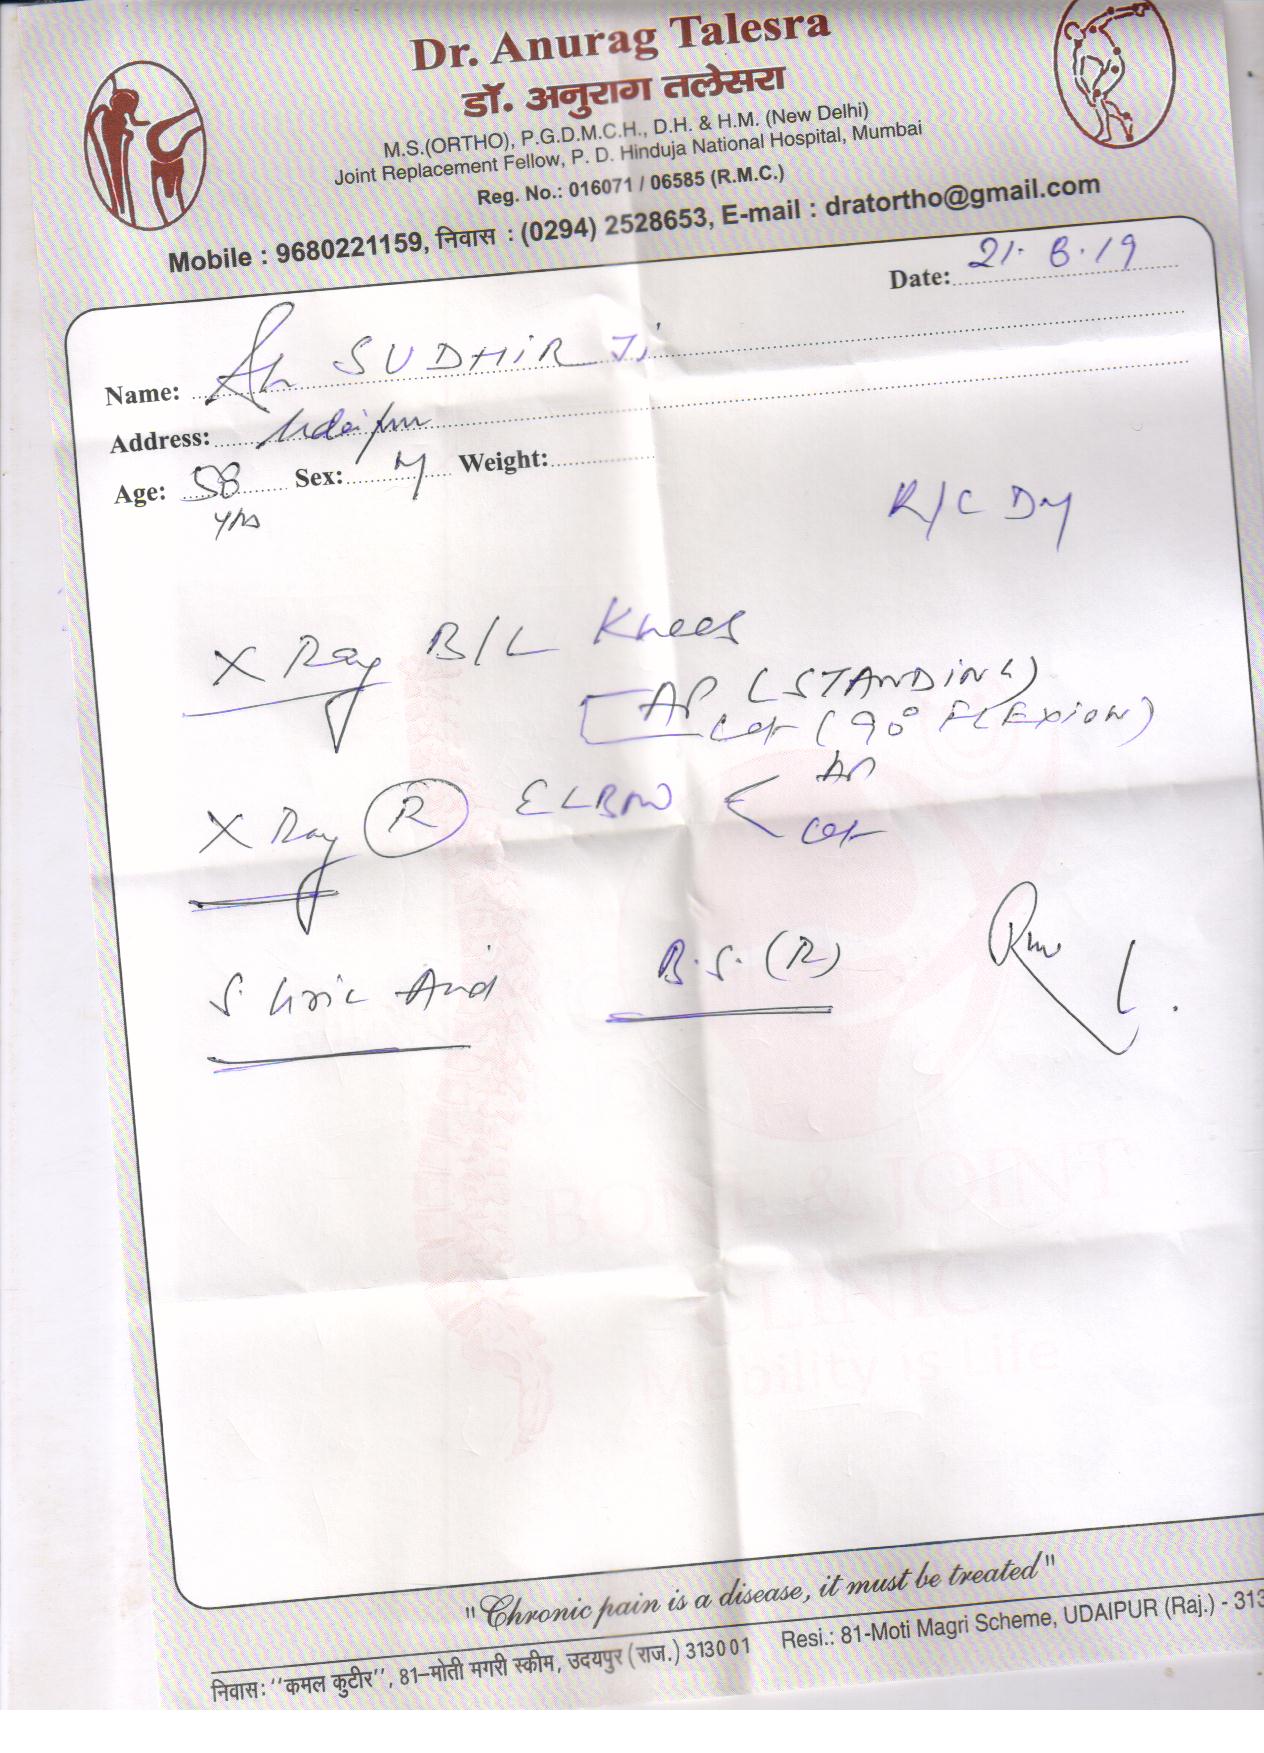 Dr. Anurag Talesra
डॉ. अनुराग तलेसरा
M.S.(ORTHO), P.G.D.M.C.H., D.H. & H.M. (New Delhi)
Joint Replacement Fellow, P. D. Hinduja National Hospital, Mumbai
Reg. No.: 016071 / 06585 (R.M.C.)
Mobile : 9680221159, निवास : (0294) 2528653, E-mail : dratortho@gmail.com
Date: 21.8.19
Name: Sh SUDHIR Ji
Address: Udaipur
Age: 58 yrs Sex: M Weight:
R/C DM
X Ray B/L Knees
AP (STANDING)
Lat (90° FLEXION)
X Ray R ELBOW < AP
Lat
S. Uric Acid B.S. (R)
BONE & JOINT
CLINIC
Mobility is Life
"Chronic pain is a disease, it must be treated"
निवास: ''कमल कुटीर'', 81–मोती मगरी स्कीम, उदयपुर (राज.) 313001 Resi.: 81-Moti Magri Scheme, UDAIPUR (Raj.) - 313